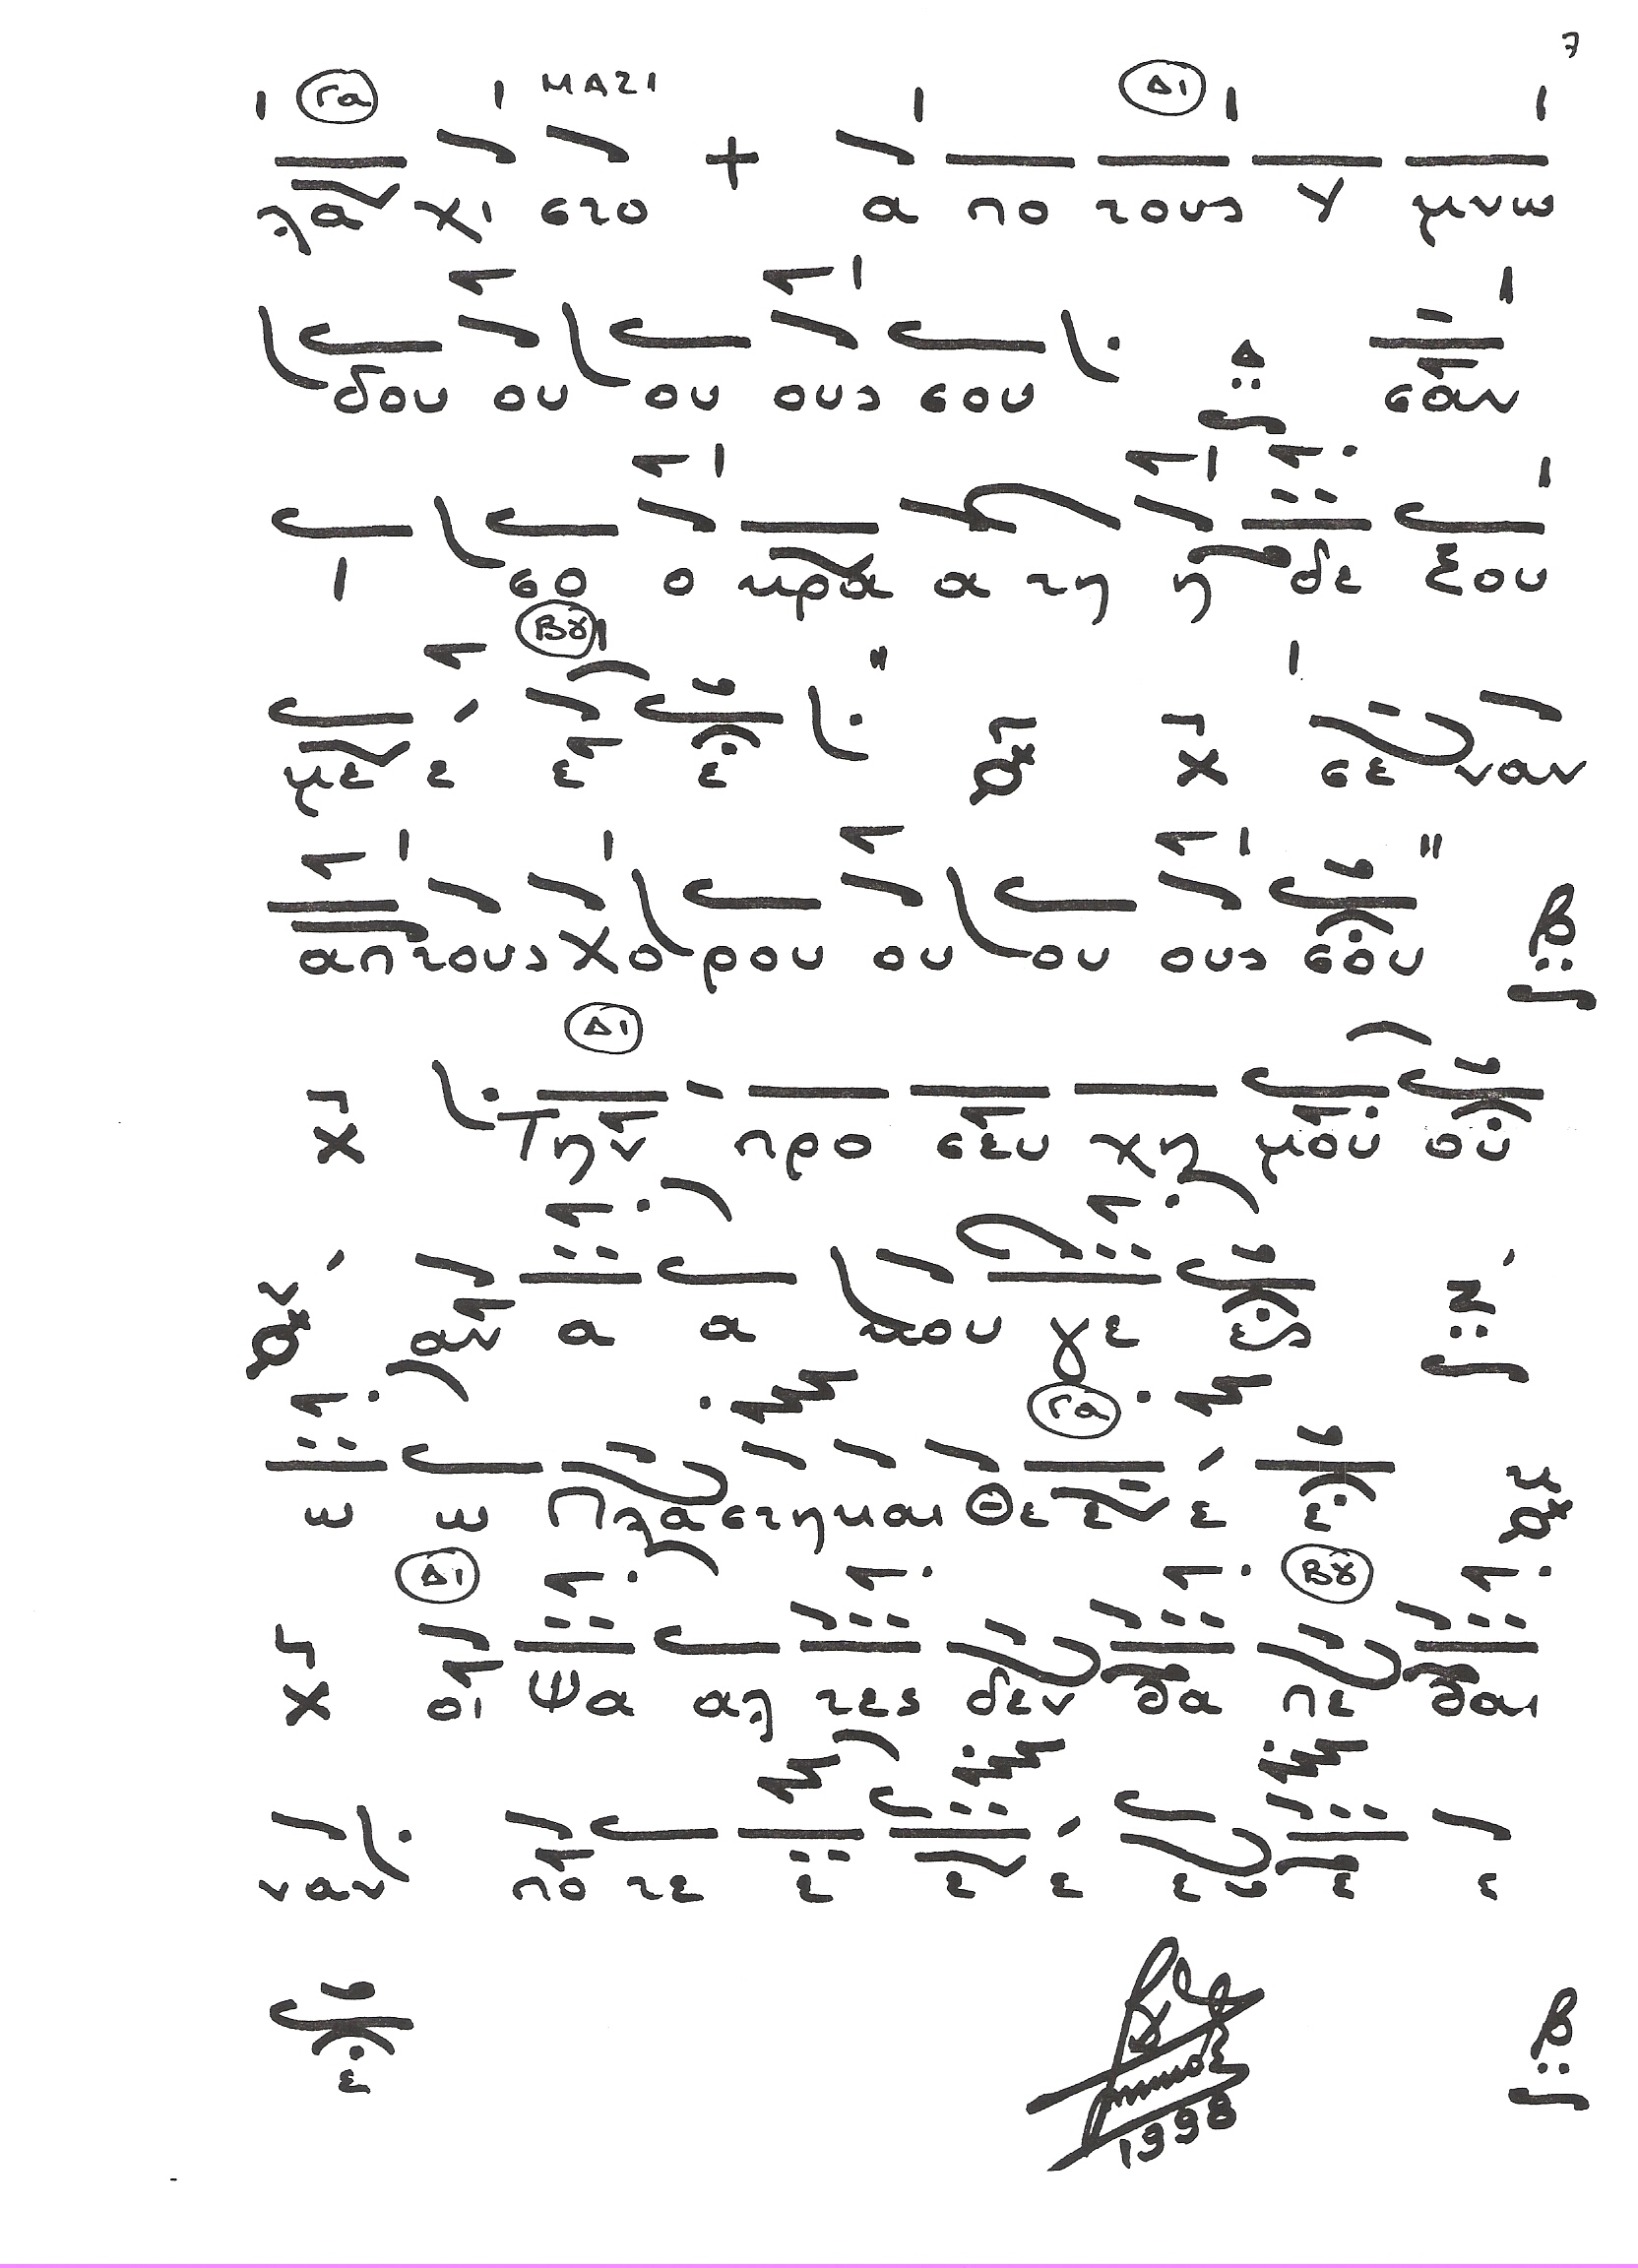 7
Γα ΜΑΖΙ Δι
λα χι στο + α πο τους υ μνω
δου ου ου ους σου Δ σαν
ι σο ο κρα α τη η δε ξου
Βȣ
με ε ε ε σε ναν
απ τους χο ρου ου ου ους σου β
Δι
Την προ σευ χη μου ου
αν α α κου γε εις Ν
Γα
ω ω Πλα στη και Θε ε ε ε
Δι Βȣ
οι Ψα αλ τες δεν θα πε θαι
ναν πο τε ε ε ε ε ε ε
ε β
1998